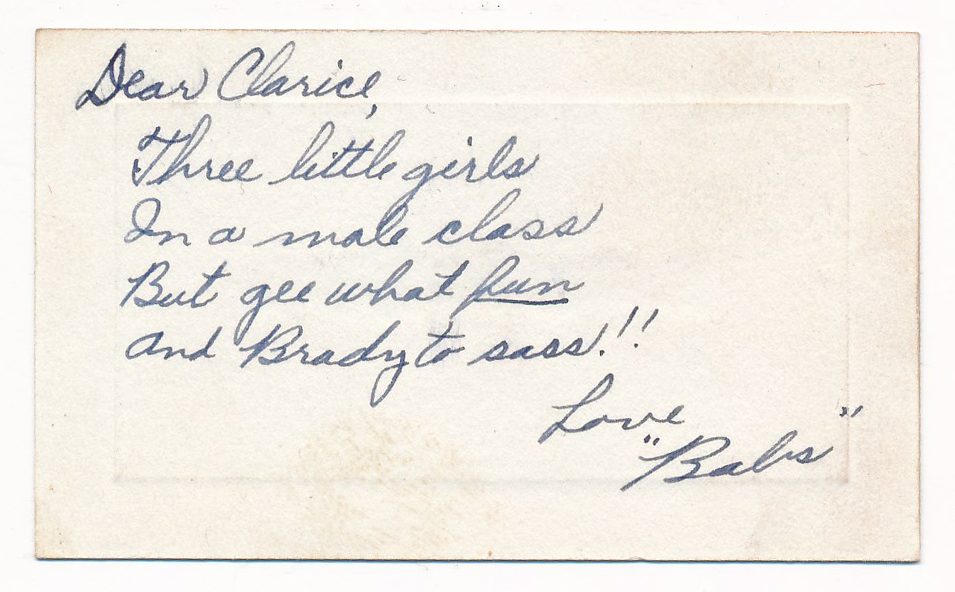 Dear Clarice,
Three little girls
In a male class
But gee what fun
And Brady to sass!!!
Love
"Babs"